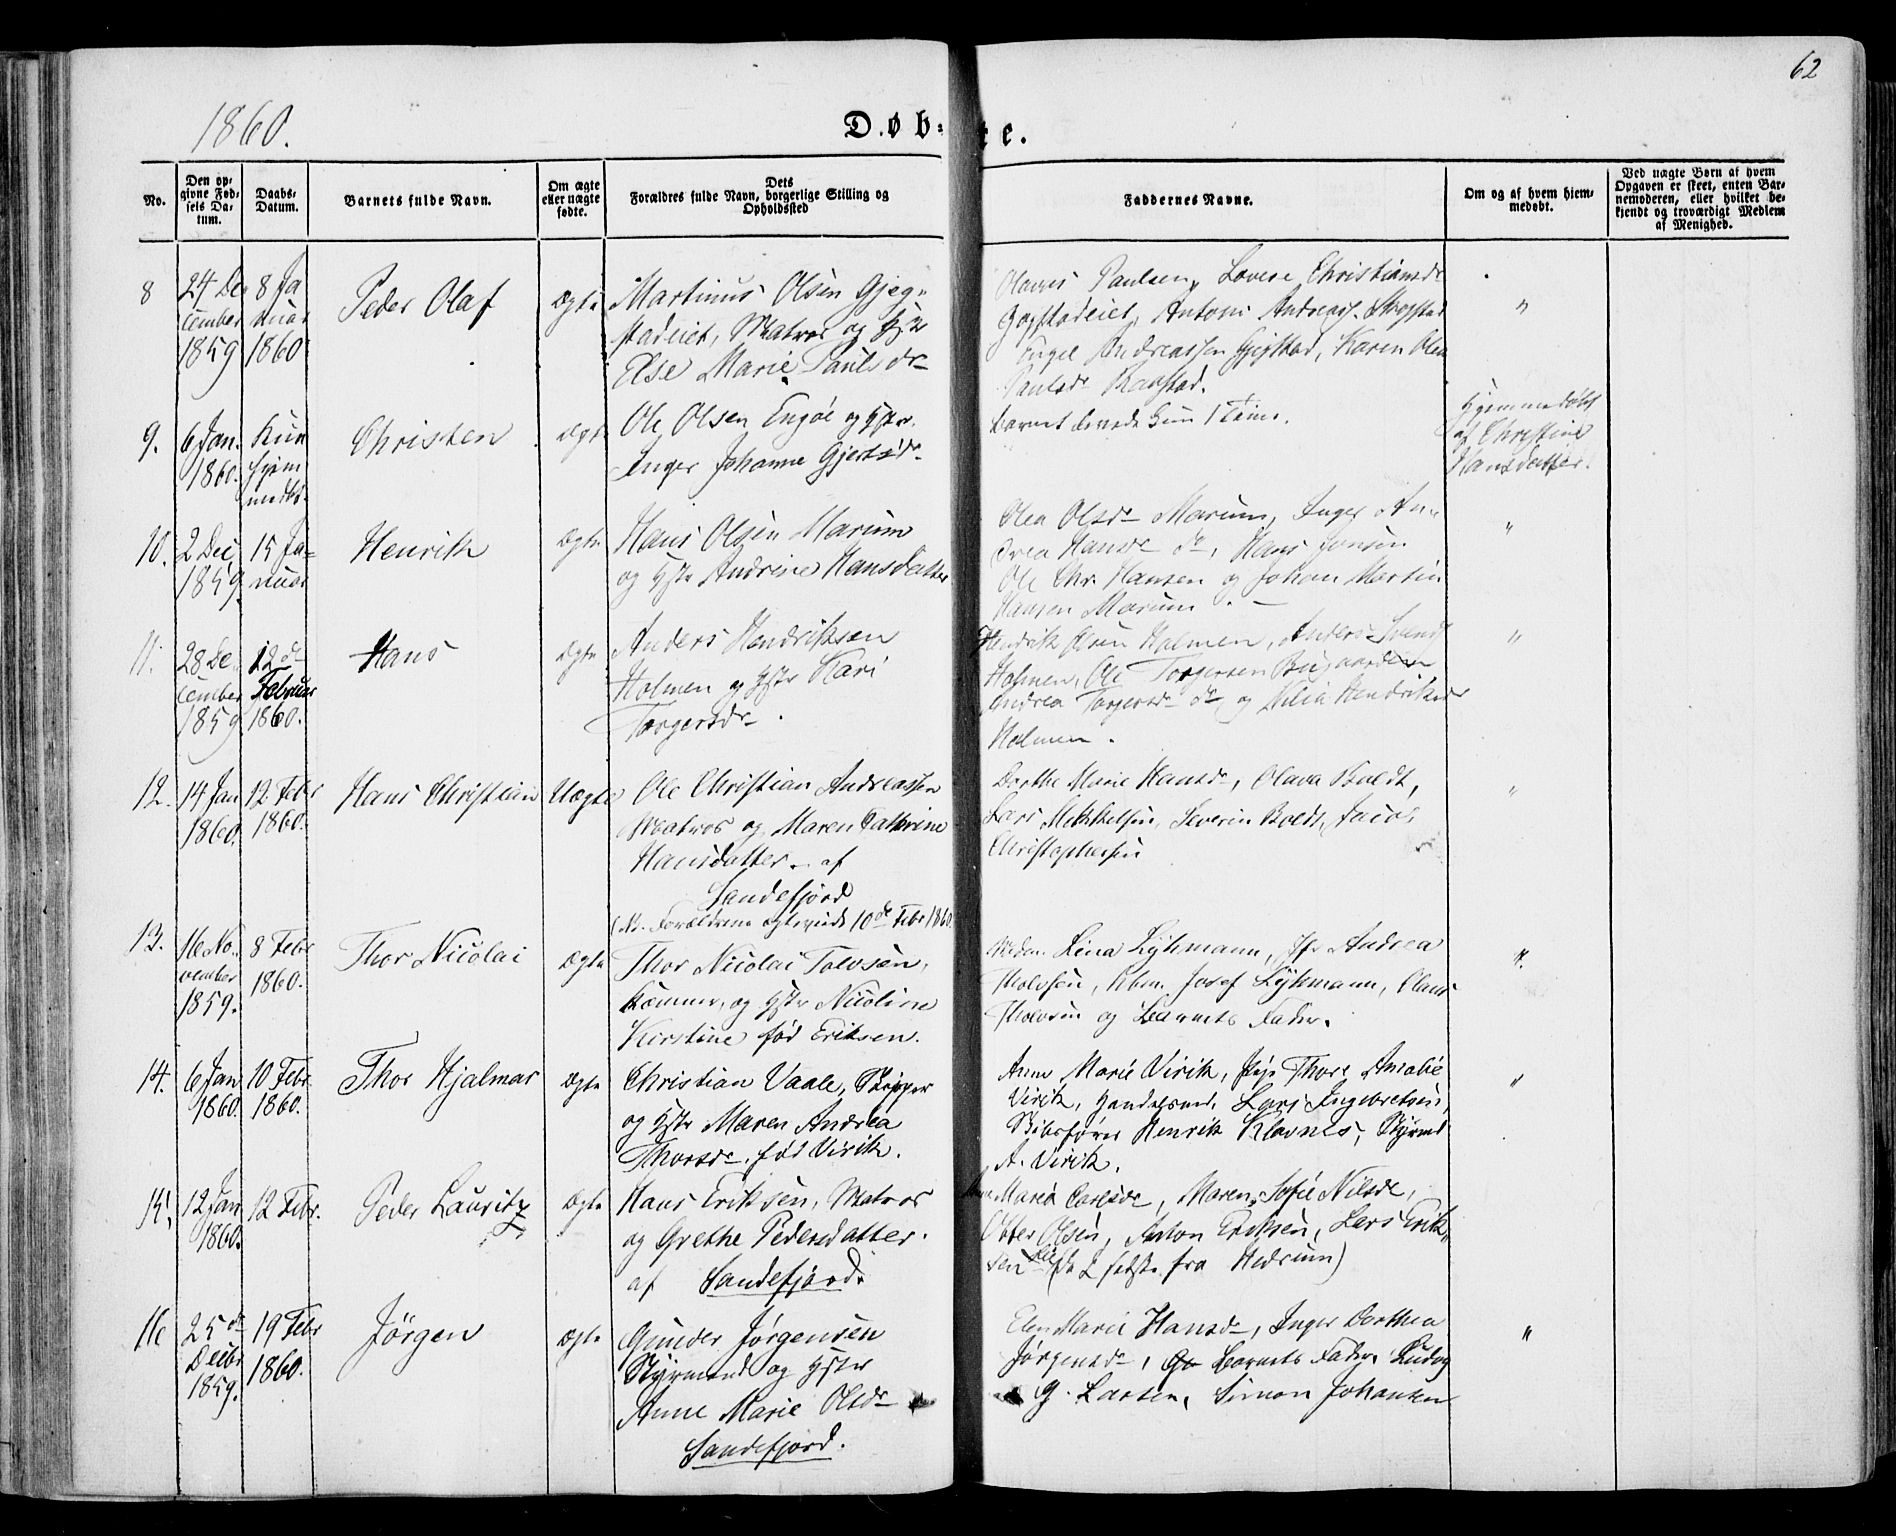 62
1860.
Døb-
te.
No.
Den op-
givne Fød-
sels Da-
tum.
Daabs-
Datum.
Barnets fulde Navn.
Om ægte
eller uægte
fødte.
Dets
Forældres fulde Navn, borgerlige Stilling og
Opholdssted
Faddernes Navne.
Om og af hvem hjem-
medøbt.
Ved uægte Børn af hvem
Opgaven er skeet, enten Bar-
nemoderen, eller hvilket be-
kjendt og troværdigt Medlem
af Menighed.
8
24 De
cember
1859
8 Ja
nuar
1860
Peder Olaf
Ægte
Martinus Olsen Gjeg-
stadeiet, Matros og Hstr
Else Marie Paulsdr
Paulsen, Lovise Christiansdr
Gogstadeiet, Antoni
Engel Andreassen Gjegstad, Karen Olea
Paulsdr
"
9.
6 Jan.
1860.
Kun
hjem
medbt.
Christen
Ægte
Ole Olsen Engøe og Hstr.
Inger Johanne Gjertsdr
Barnet levede kun 1 Time.
Hjemmedøbt
af Christine
Hansdatter.
10.
2 Dec
1859
15 Ja-
nuar
Henrik
Ægte
Hans Olsen Marum
og Hstr Andrine Hansdatter
Olea Olsdr Marum, Inger An-
drea Hansdr do, Hans Jensen
Ole Chr. Hansen og Johan Martin
Hansen Marum.
"
11.
28 De
cember
1859
12te
Februar
1860.
Hans
Ægte
Anders Hendriksen
Holmen og Hstr Kari
Torgersdr.
Hendrik Olsen Holmen, Anders Svends
Holmen, Ole Torgersen Bugaarden
Andrea Torgersdr do og Nilia Hendriksdr
Holmen.
"
12.
14 Jan
1860.
12 Febr
1860.
Hans Christian
Uægte
Ole Christian Andreassen
Matros og Maren Cathrine
Hansdatter af
Sandefjord
(Nb. Forældrene ægteviede 10de Febr 1860.
Dorthe Marie Hansdr, Olava Boldt,
Lars Mikkelsen, Severin Boldt, Jacob
Christophersen
"
13.
16 No-
vember
1859.
8 Febr
1860.
Thor Nicolai
Ægte
Thor Nicolai Tolvsen,
og Hstr Nicoline
Kirstine fød Eriksen.
Madm. Lina Lykmann, Jfr Andrea
Tholfsen, Kbm. Josef Lykmann, Claus
Tholvsen og Barnets Fader.
"
14.
6 Jan
1860.
10 Febr.
1860.
Thor Hjalmar
Ægte
Christian Vaale, Skipper
og Hstr Maren Andrea
Thorsdr. fød Virik.
Anne Marie Virik, Pige Thore Amalie
Virik, Handelsmd. Lars Ingebretsen,
Skibsfører Henrik Klavnes, Styrmd
A. Virik.
"
15.
12 Jan
1860.
12 Febr.
Peder Lauritz
Ægte
Hans Eriksen, Matros
og Grethe Pedersdatter.
af Sandefjord.
Maria Carlsdr, Maren Sofie Nilsdr,
Otter Olsen, Anton Eriksen, Lars Erik-
sen (de 2 sidste fra Hedrum)
16
25de
Decbr
1859.
19 Febr
1860.
Jørgen
Ægte
Gunder Jørgensen
Styrmand og Hstr
Anne Marie Olsdr
Sandefjord.
Elen Marie Hansdr, Inger Dorthea
Jørgensdr, Barnets Fader, Ludvg
G. Larsen, Simon Johansen
"